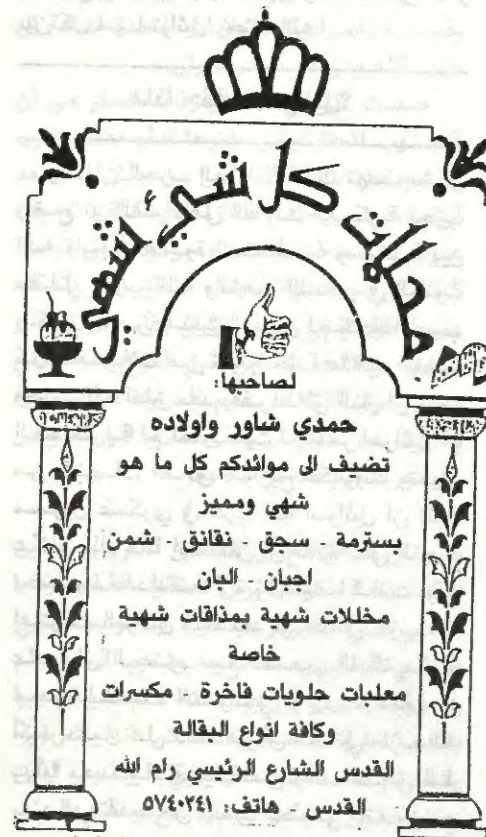 محلات كل شيء شهي
لصاحبها:
حمدي شاور واولاده
تضيف الى موائدكم كل ما هو
شهي ومميز
بسترمة - سجق - نقانق - شمن
اجبان - البان
مخللات شهية بمذاقات شهية
خاصة
معلبات حلويات فاخرة - مكسرات
وكافة انواع البقالة
القدس الشارع الرئيسي رام الله
القدس - هاتف: ٥٧٤٠٣٤١